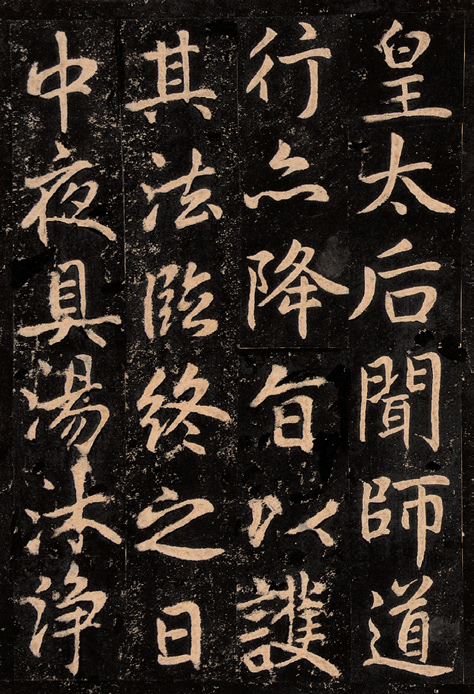 皇太后聞師道
行亦降旨以護
其法臨終之日
中夜具湯沐淨